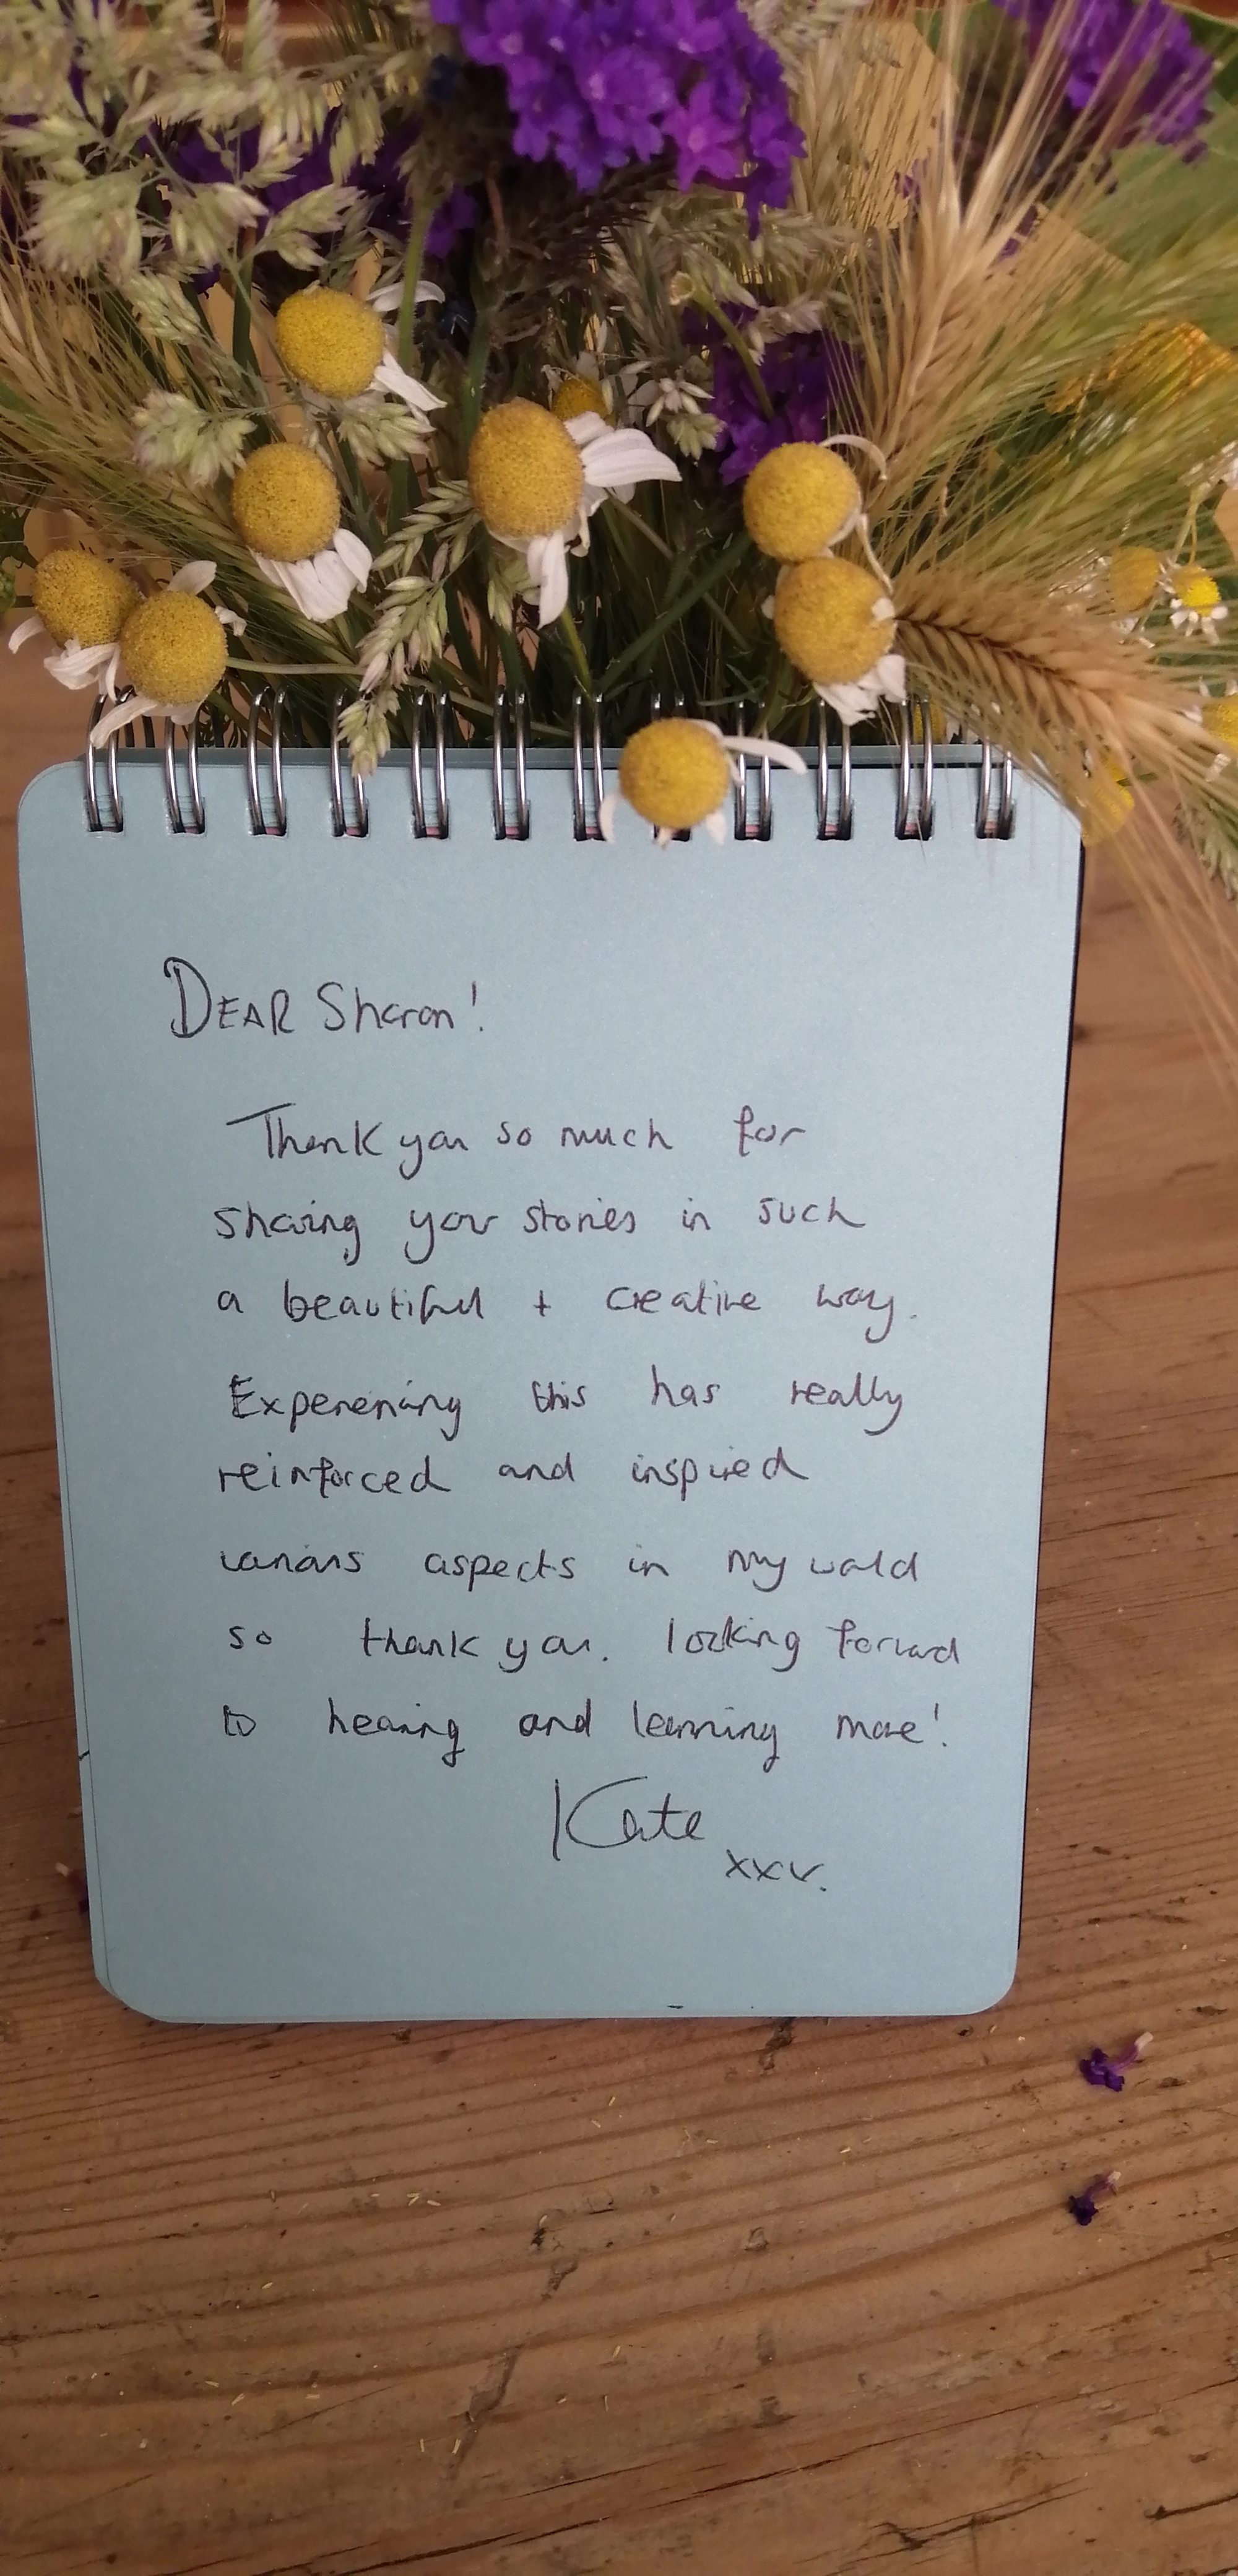 DEAR Sharon!
Thank you so much for
sharing your stories in such
a beautiful + creative way.
Experiencing this has really
reinforced and inspired
various aspects in my world
so thank you. looking forward
to hearing and learning more!
Kate
xxx.